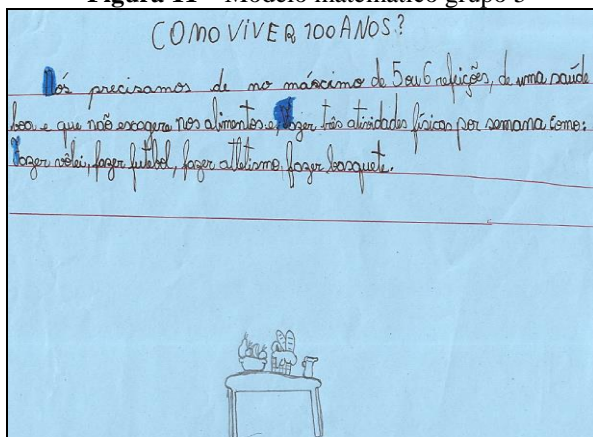 Figura 11 – Modelo matemático grupo 3
COMO VIVER 100 ANOS?
Nós precisamos de no máximo de 5 ou 6 refeições, de uma saúde
boa e que não exagere nos alimentos e fazer três atividades físicas por semana como:
fazer vôlei, fazer futebol, fazer atletismo, fazer basquete.